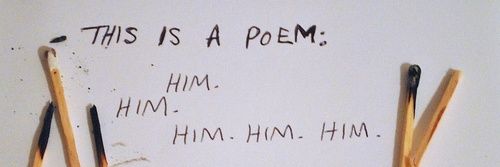 THIS IS A POEM:
HIM.
HIM.
HIM. HIM. HIM.